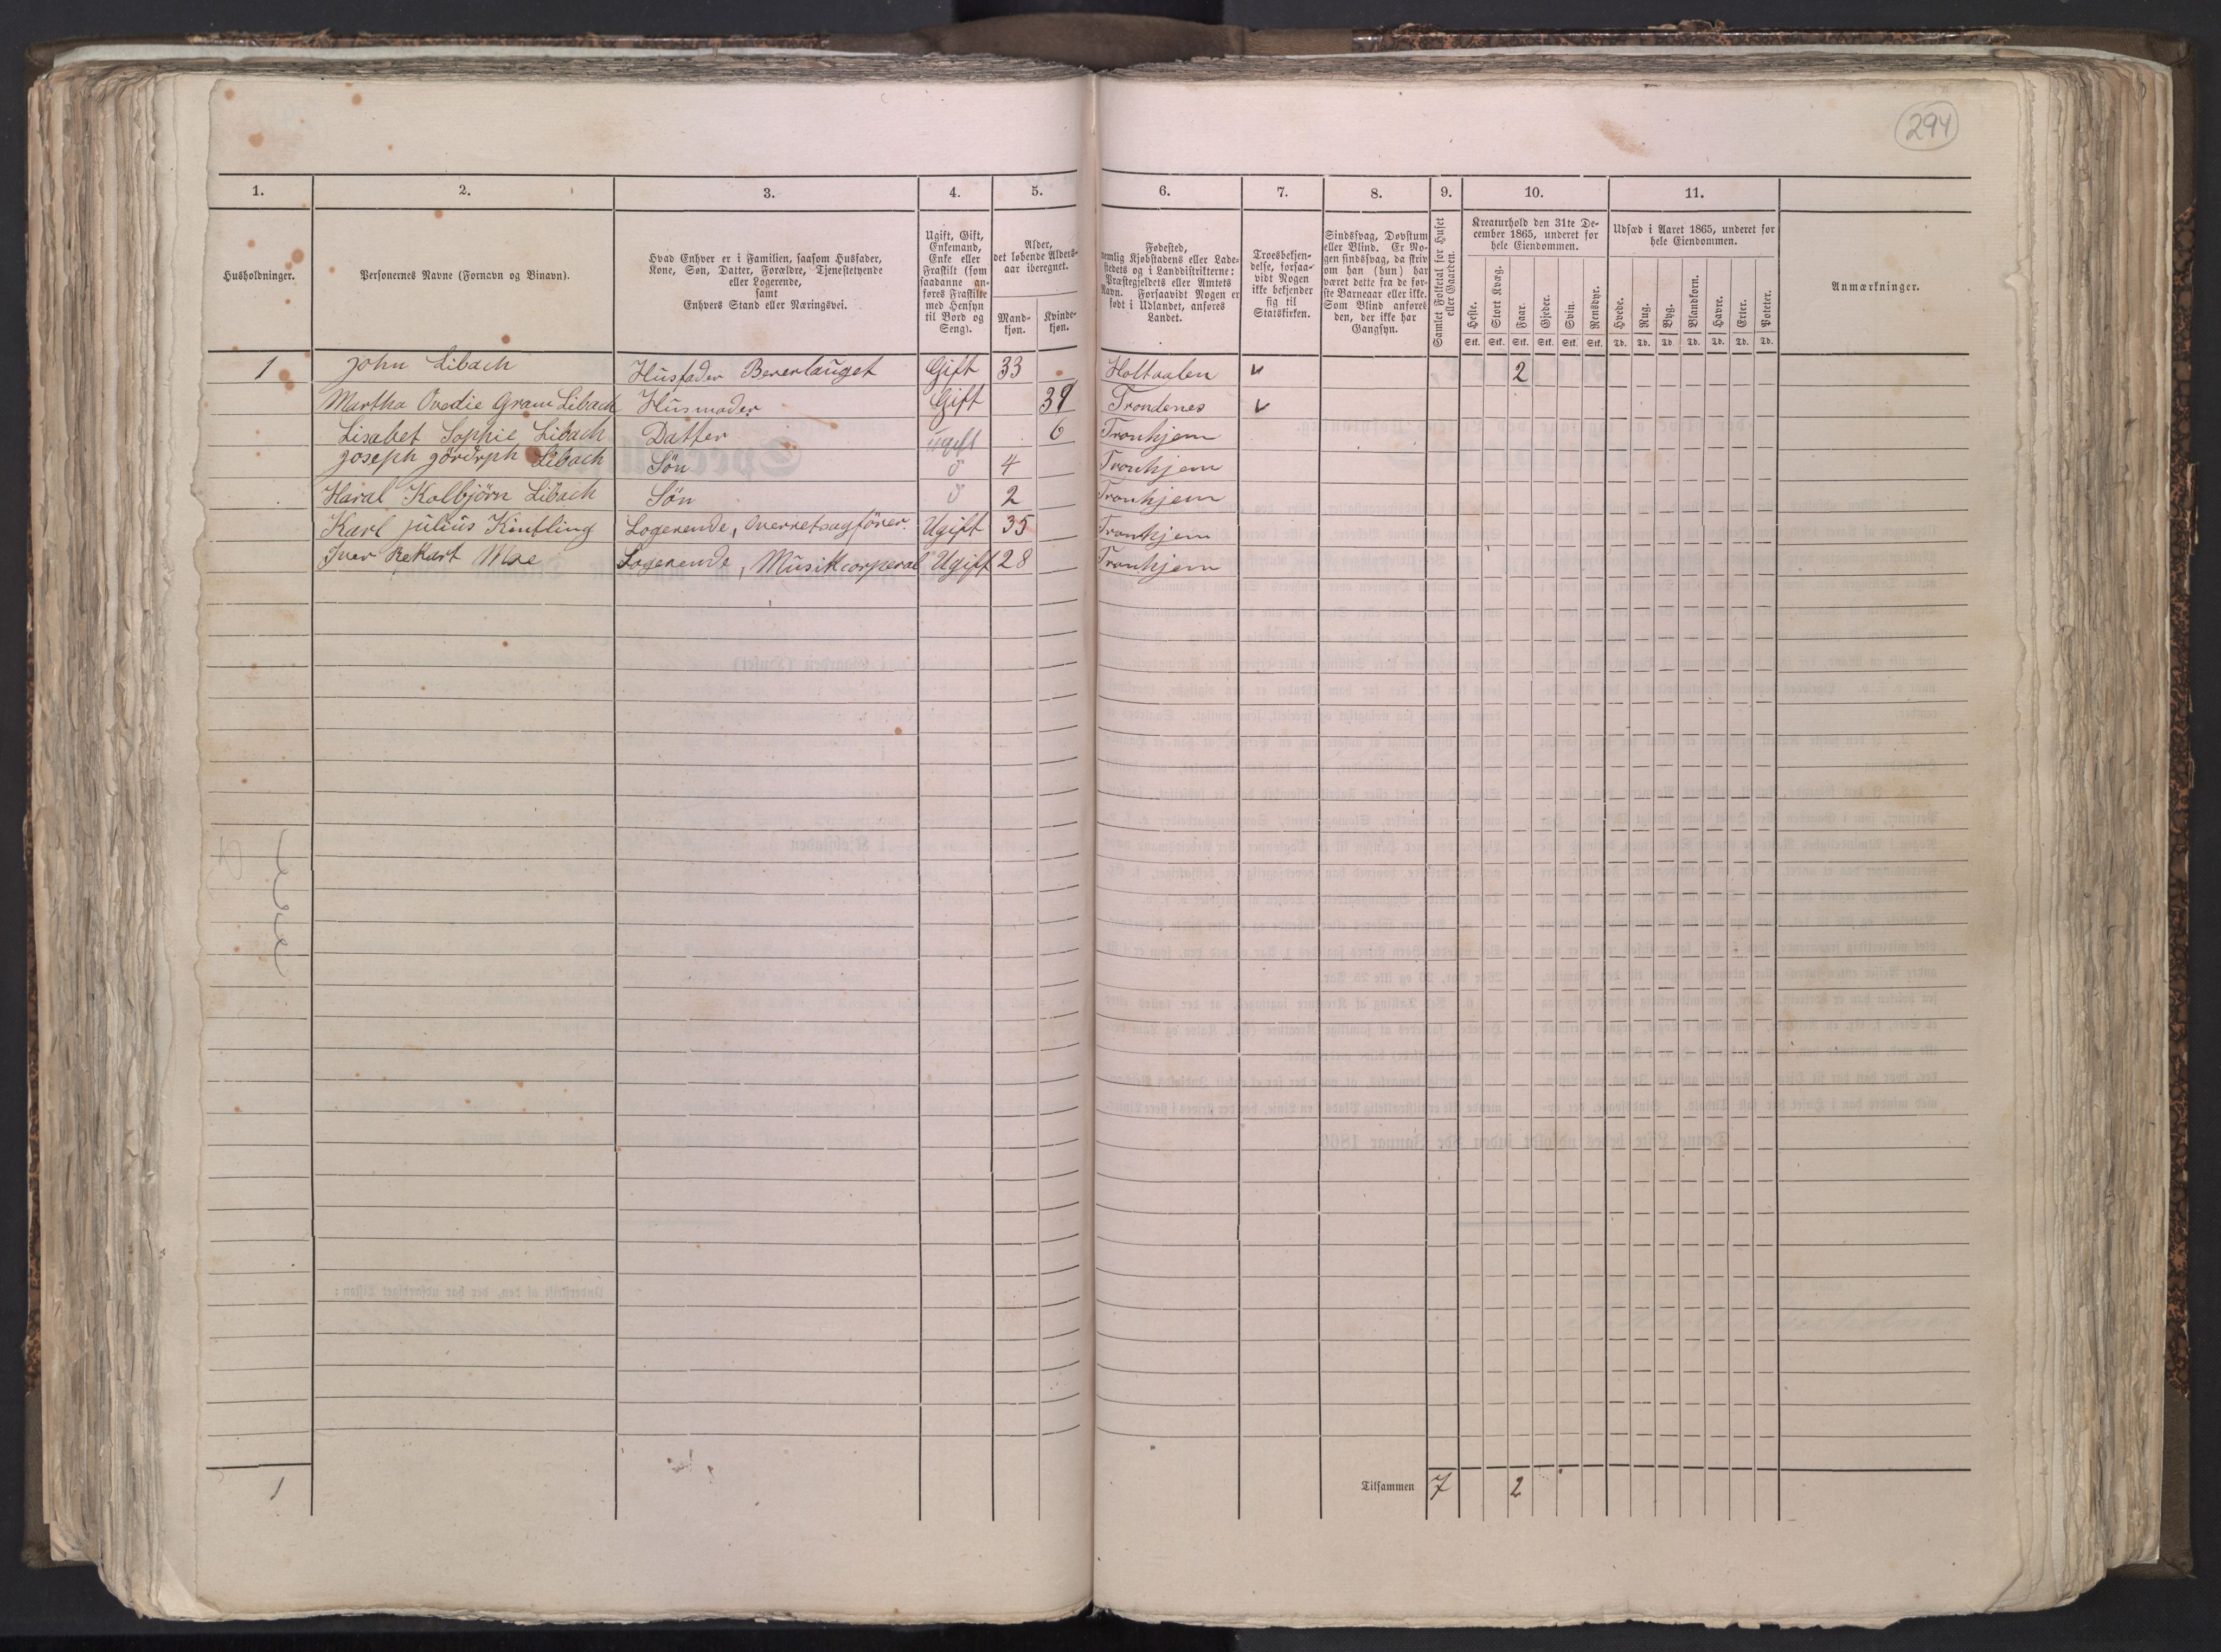 294
1. 2. 3. 4. 5. 6. 7. 8. 9. 10. 11.
Husholdninger.
Personernes Navne (Fornavn og Binavn).
Hvad Enhver er i Familien, saasom Husfader,
Kone, Søn, Datter, Forældre, Tjenestetyende
eller Logerende,
samt
Enhvers Stand eller Næringsvei.
Ugift, Gift,
Enkemand,
Enke eller
Fraskilt (som
saadanne an-
føres Fraskilte
med Hensyn
til Bord og
Seng).
Alder,
det løbende Alders-
aar iberegnet.
Mand-
kjøn.
Kvinde-
kjøn.
Fødested,
nemlig Kjøbstadens eller Lade-
stedets og i Landdistrikterne:
Præstegjeldets eller Amtets
Navn. Forsaavidt Nogen er
født i Udlandet, anføres
Landet.
Troesbekjen-
delse, forsaa-
vidt Nogen
ikke bekjender
sig til
Statskirken.
Sindssvag, Døvstum
eller Blind. Er No-
gen sindssvag, da skriv
om han (hun) har
været dette fra de før-
ste Barneaar eller ikke.
Som Blind anføres
den, der ikke har
Gangsyn.
Samlet Folketal for Huset
eller Gaarden.
Kreaturhold den 31te De-
cember 1865, underet for
hele Eiendommen.
Heste. Stort Kvæg. Faar. Gjeder. Svin. Rensdyr.
Stk. Stk. Stk. Stk. Stk. Stk.
Udsæd i Aaret 1865, underet for
hele Eiendommen.
Hvede. Rug. Byg. Blandkorn. Havre. Erter. Poteter.
Td. Td. Td. Td. Td. Td. Td.
Anmærkninger.
1 John Libach Husfader Gift 33 Holtaalen 2
Martha Ovedie Gram Libach Husmoder Gift Trondenes
Lisabet Sophie Libach Datter Ugift 6 Tronhjem
Joseph Libach Søn 4 Tronhjem
Haral Kolbjörn Libach Søn 2 Tronhjem
Karl Julius Logerende, Overretsagförer. Ugift 35 Tronhjem
Iver Moe Logerende, Musikcorperal Ugift 28 Tronhjem
1 Tilsammen 7 2